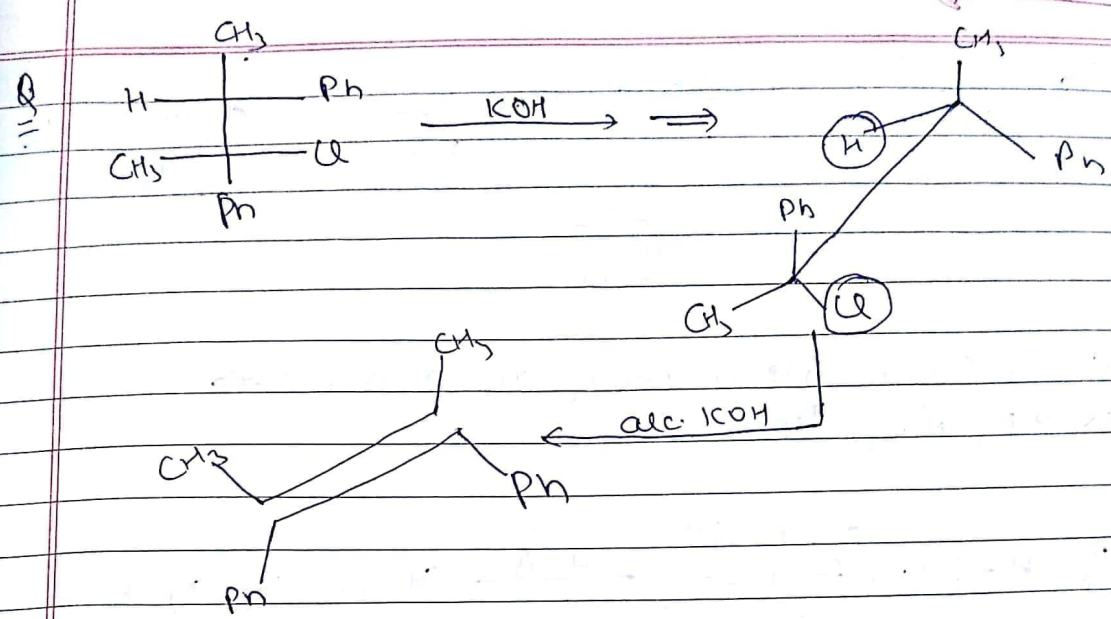 CH3
Q H Ph
KOH
CH3 Cl
Ph
CH3
H
Ph
Ph
CH3 Cl
alc. KOH
CH3
CH3
Ph
Ph